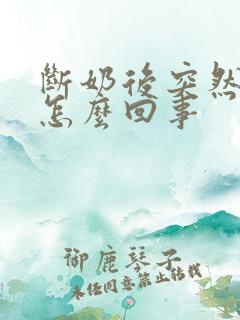 斷奶後突然
怎麼回事
御鹿琴子
未經同意禁止轉載